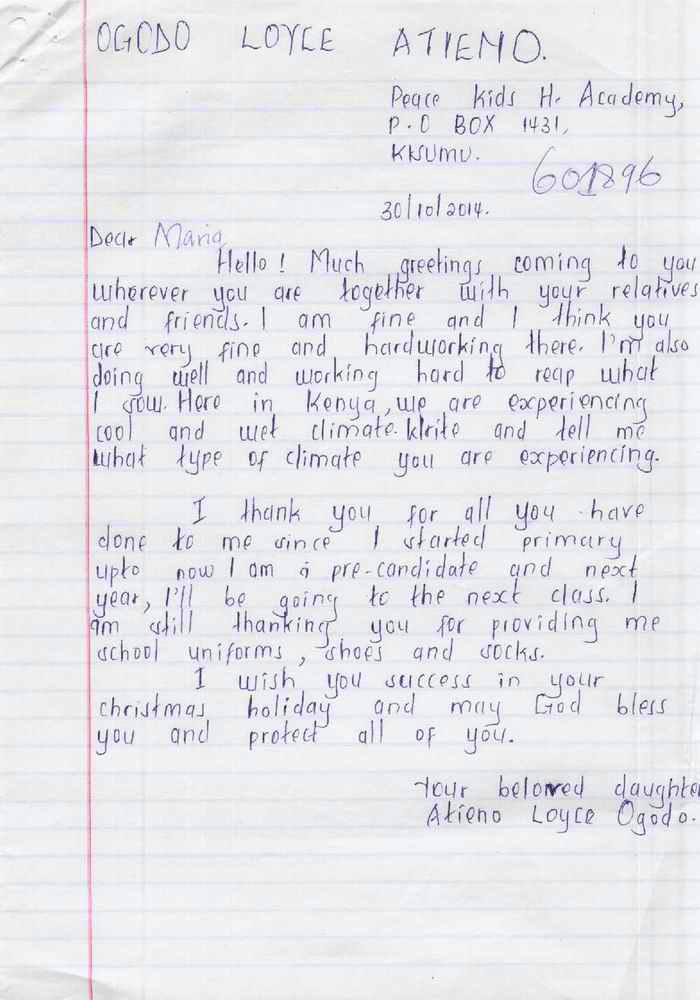 OGODO LOYCE ATIENO.
Peace Kids H. Academy,
P.O BOX 1431,
KISUMU.
601896
30/10/2014.
Dear Maria
Hello! Much greetings coming to you
wherever you are together with your relatives
and friends. I am fine and I think you
are very fine and hardworking there. I'm also
doing well and working hard to reap what
I sow. Here in Kenya, we are experiencing
cool and wet climate. Write and tell me
what type of climate you are experiencing.
I thank you for all you have
done to me since I started primary
upto now I am a pre-candidate and next
year, I'll be going to the next class. I
am still thanking you for providing me
school uniforms, shoes and socks.
I wish you success in your
christmas holiday and may God bless
you and protect all of you.
Your beloved daughter
Atieno Loyce Ogodo.